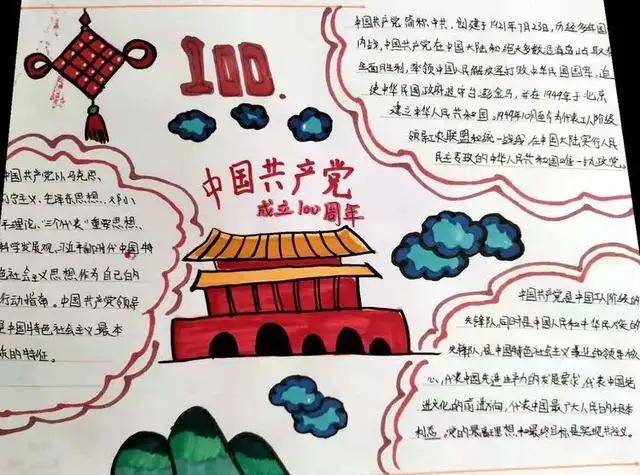 100.
中国共产党
成立100周年
中国共产党,简称中共,创建于1921年7月23日,历经多年国
内战,中国共产党在中国大陆和绝大多数沿海岛屿取
年面胜利,率领中国人民解放军打败中华民国国军,迫
使中华民国政府退守台澎金马,并在1949年于北京
建立中华人民共和国。1949年10月至今为代表工人阶级
领导工农联盟和统一战线,在中国大陆实行人民
民主专政的中华人民共和国唯一执政党。
中国共产党以马克思、
列宁主义、毛泽东思想、邓小
平理论、“三个代表”重要思想、
科学发展观、习近平新时代中国特
色社会主义思想作为自己的
行动指南。中国共产党领导
是中国特色社会主义最本
质的特征。
中国共产党是中国工人阶级的
先锋队,同时是中国人民和中华民族的
先锋队,是中国特色社会主义事业的领导核
心,代表中国先进生产力的发展要求,代表中国先
进文化的前进方向,代表中国最广大人民的根本
利益。党的最高理想和最终目标是实现共产主义。